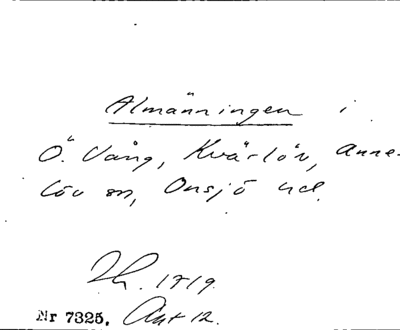 Almänningen i
Ö. Vång, Kvärlöv, Anne-
löv sn, Onsjö hd.
Zh. 1719.
Nr 7325. Akt 12.